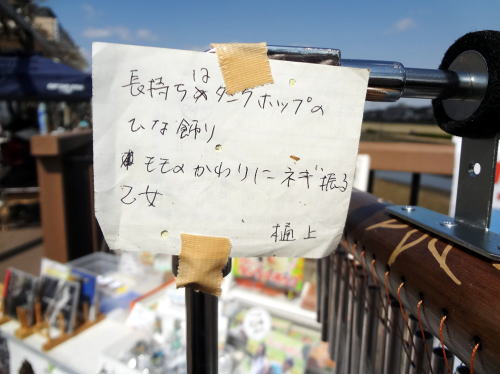 長持ちはタークホップの
ひな飾り
モモのかわりにネギ振る
乙女
樋上